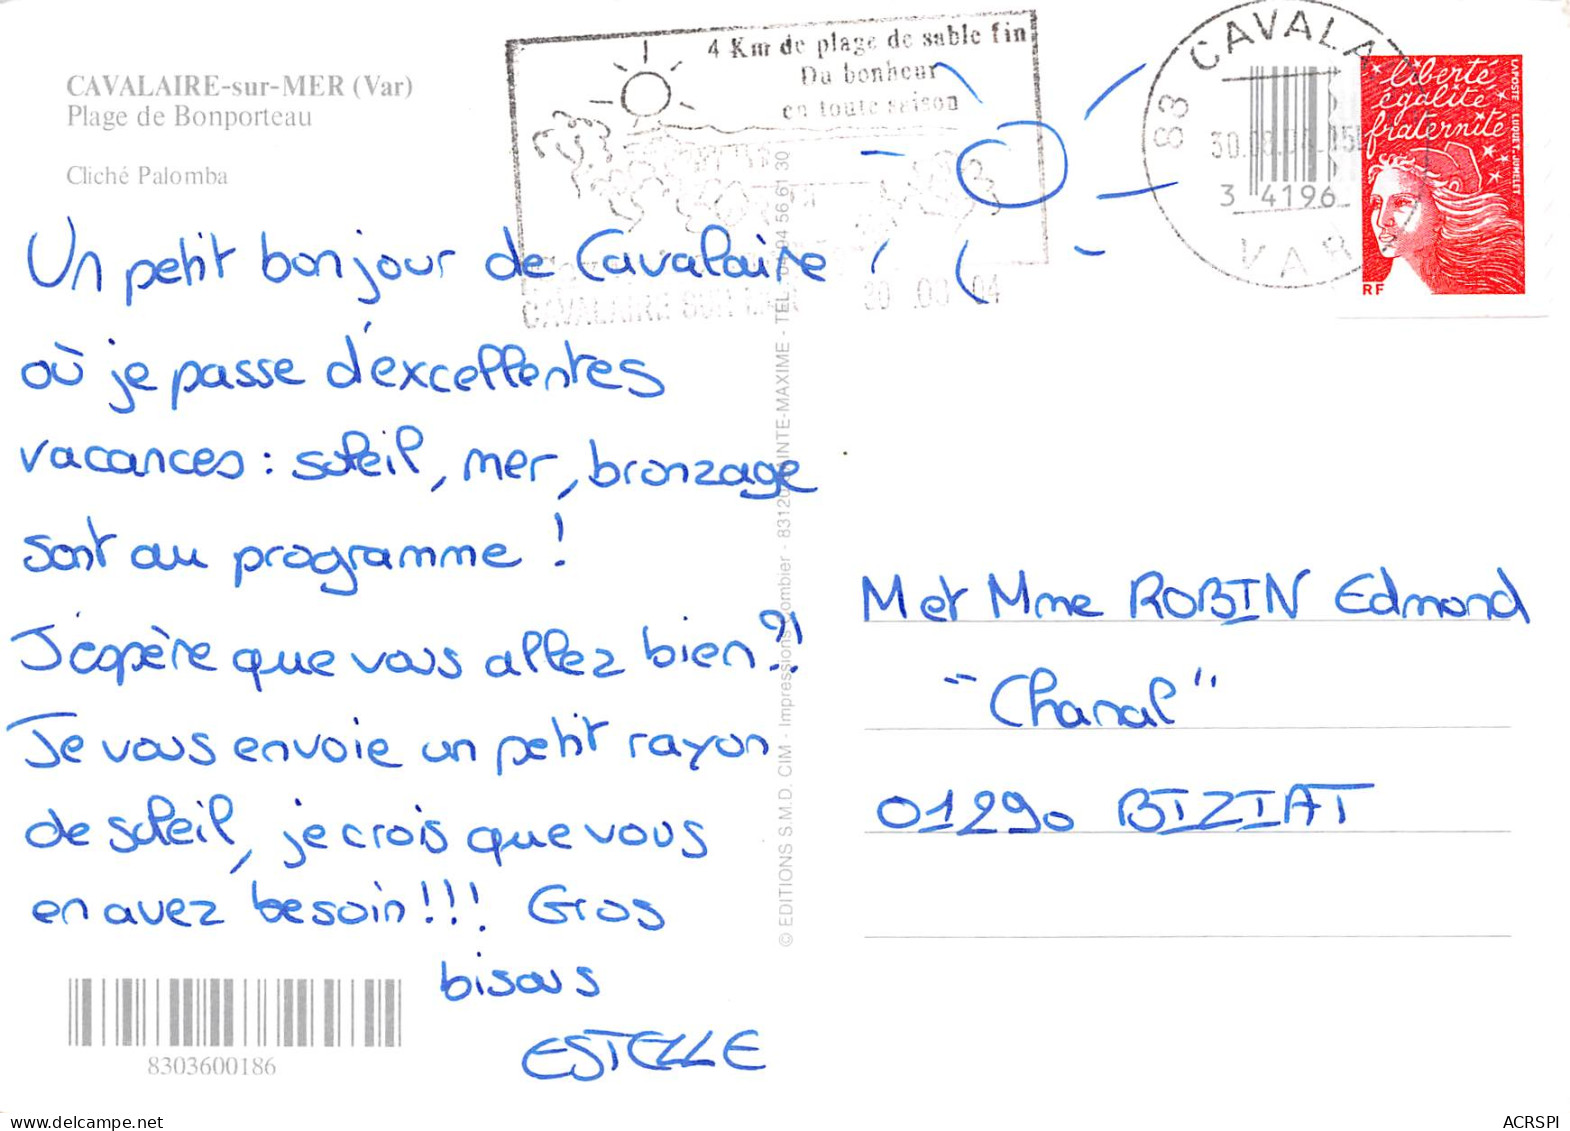 CAVALAIRE-sur-MER (Var)
Plage de Bonporteau
Cliché Palomba
4 Km de plage de sable fin
Du bonheur
en toute saison
CAVALAIRE SUR
83 CAVALA
3 4196
VAR
liberté
égalité
fraternité
LA POSTE LUQUET-JUMELET
RF
Un petit bonjour de Cavalaire
où je passe d'excellentes
vacances : soleil, mer, bronzage
sont au programme !
J'espère que vous allez bien ?!
Je vous envoie un petit rayon
de soleil, je crois que vous
en avez besoin !!! Gros
bisous
ESTELLE
© EDITIONS S.M.D. CIM - Impressions Combier - 83120 SAINTE-MAXIME - TEL. 04 94 56 61 30
M et Mme ROBIN Edmond
"Chanal"
01290 BIZIAT
8303600186
ACRSPI